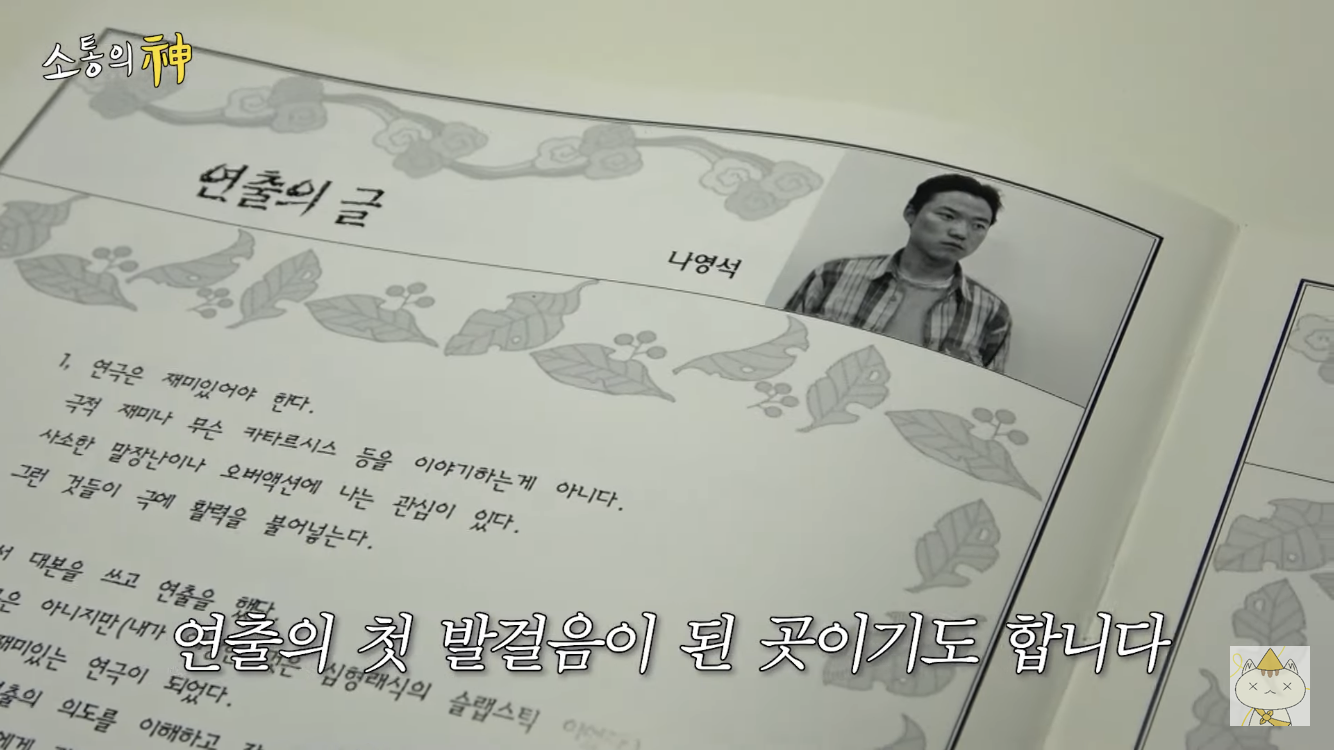 소통의 神
연출의 글
나영석
1, 연극은 재미있어야 한다.
극적 재미나 무슨 카타르시스 등을 이야기하는게 아니다.
사소한 말장난이나 오버액션에 나는 관심이 있다.
그런 것들이 극에 활력을 불어넣는다.
대본을 쓰고 연출을 했다.
아니지만(내가 심형래식의 슬랩스틱
재미있는 연극이 되었다.
의도를 이해하고
연출의 첫 발걸음이 된 곳이기도 합니다